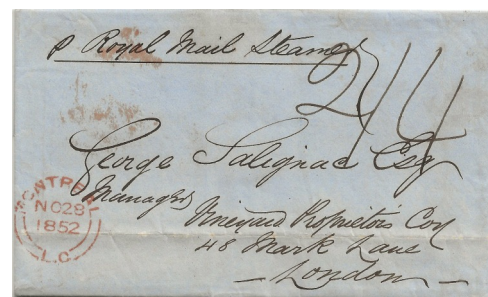 p Royal Mail Steamer
2/4
George Salignac Esq
Manager
Vineyard Proprietors Coy
48 Mark Lane
London
MONTREAL
NO 28
1852
L.C.